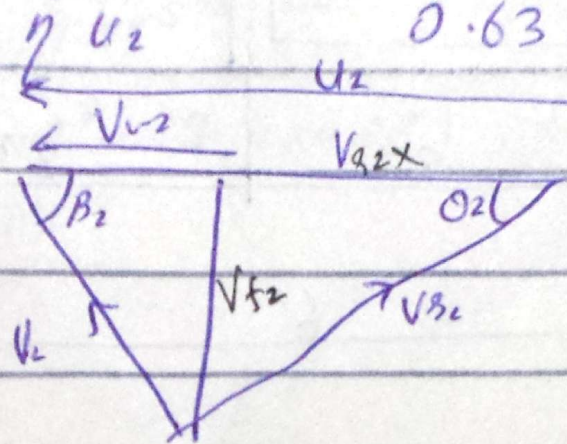 η u2 0.63
u2
Vw2
Vr2x
β2 θ2
Vf2
Vr2
V2